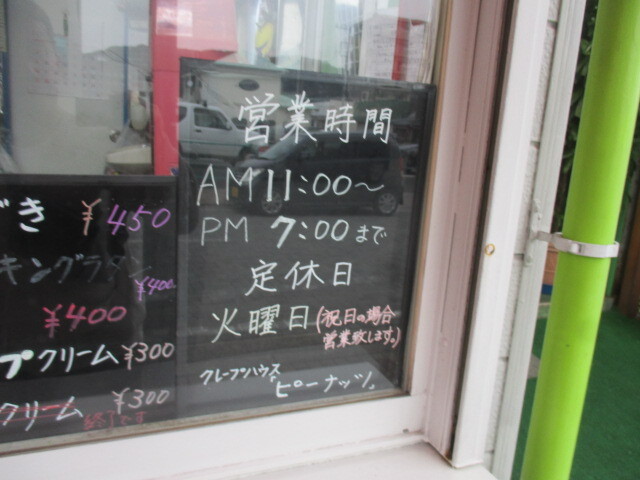 営業時間
AM 11:00〜
PM 7:00まで
定休日
火曜日(祝日の場合
営業致します。)
クレープハウス
ピーナッツ。
き ¥450
キングラタン
¥400
¥400
プクリーム ¥300
クリーム ¥300
終了です